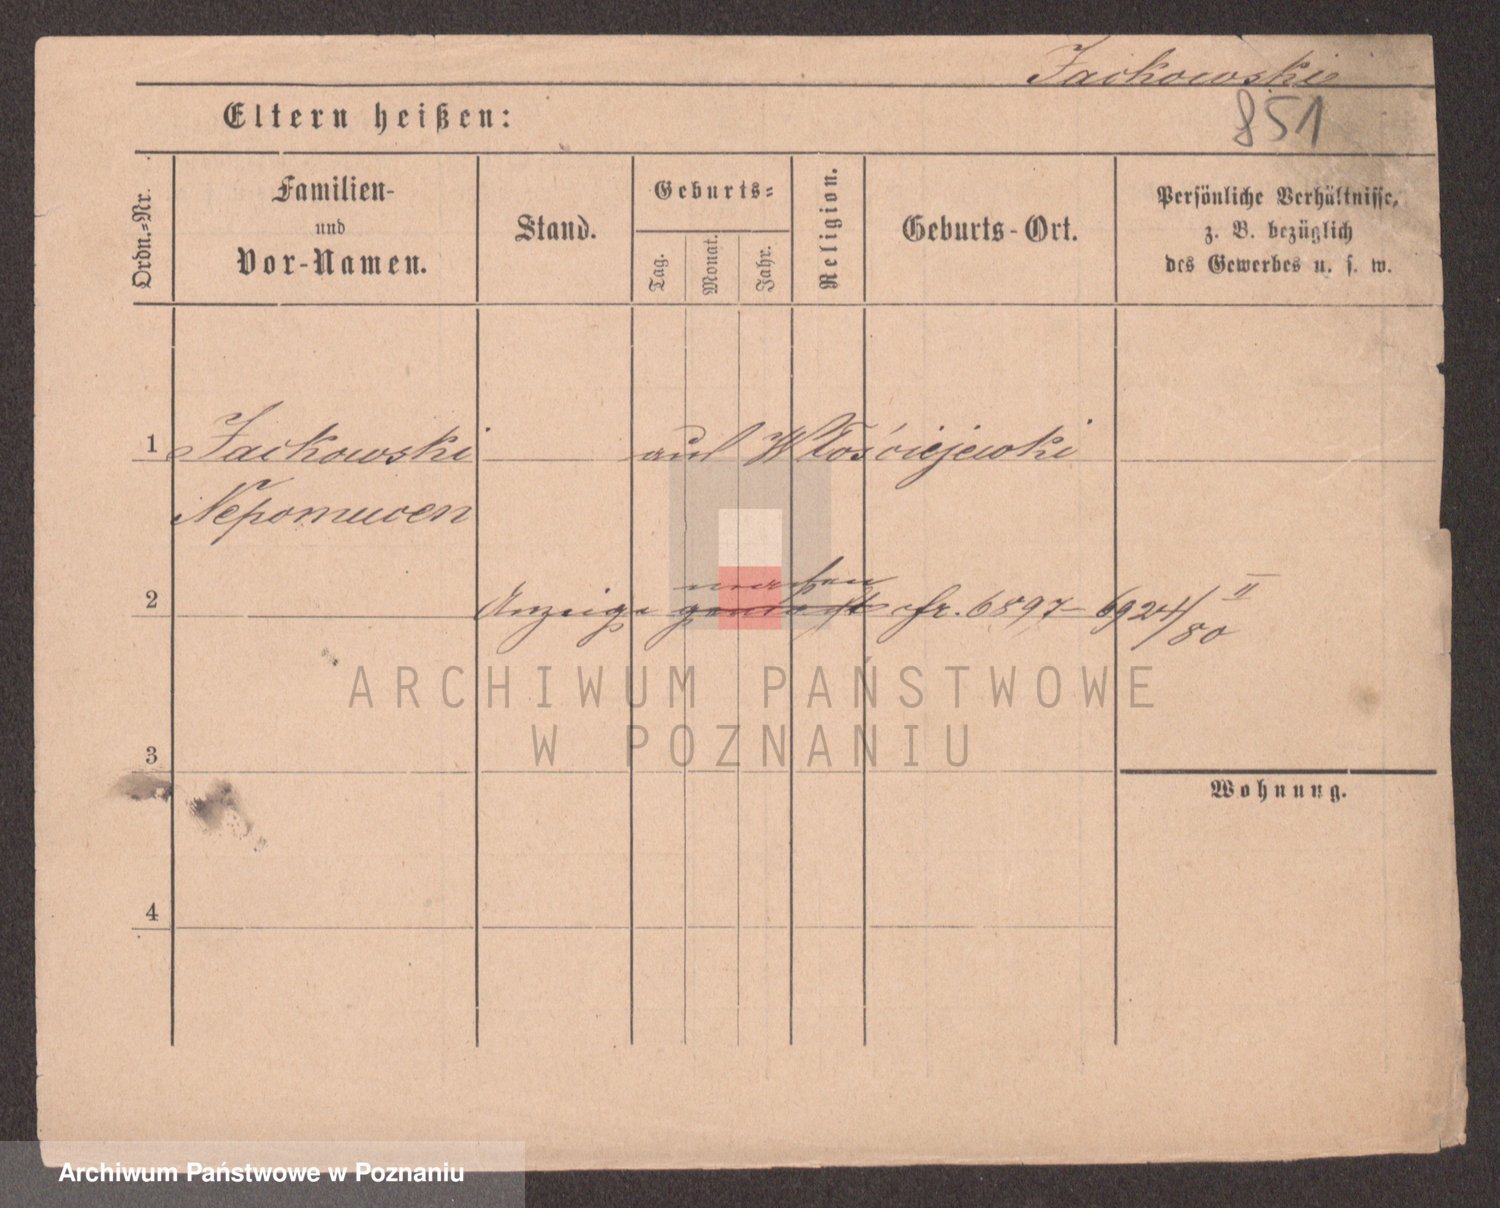 Jackowski
851
Eltern heißen:
Ordn.-Nr.
Familien-
und
Vor-Namen.
Stand.
Geburts-
Tag.
Monat.
Jahr.
Religion.
Geburts-Ort.
Persönliche Verhältnisse,
z. B. bezüglich
des Gewerbes u. s. w.
1 Jackowski auf Włościejewki
Nepomucen
machen
2 Anzeige gemacht cfr. 6897-6924/80 II
ARCHIWUM PAŃSTWOWE
W POZNANIU
3
Wohnung.
4
Archiwum Państwowe w Poznaniu